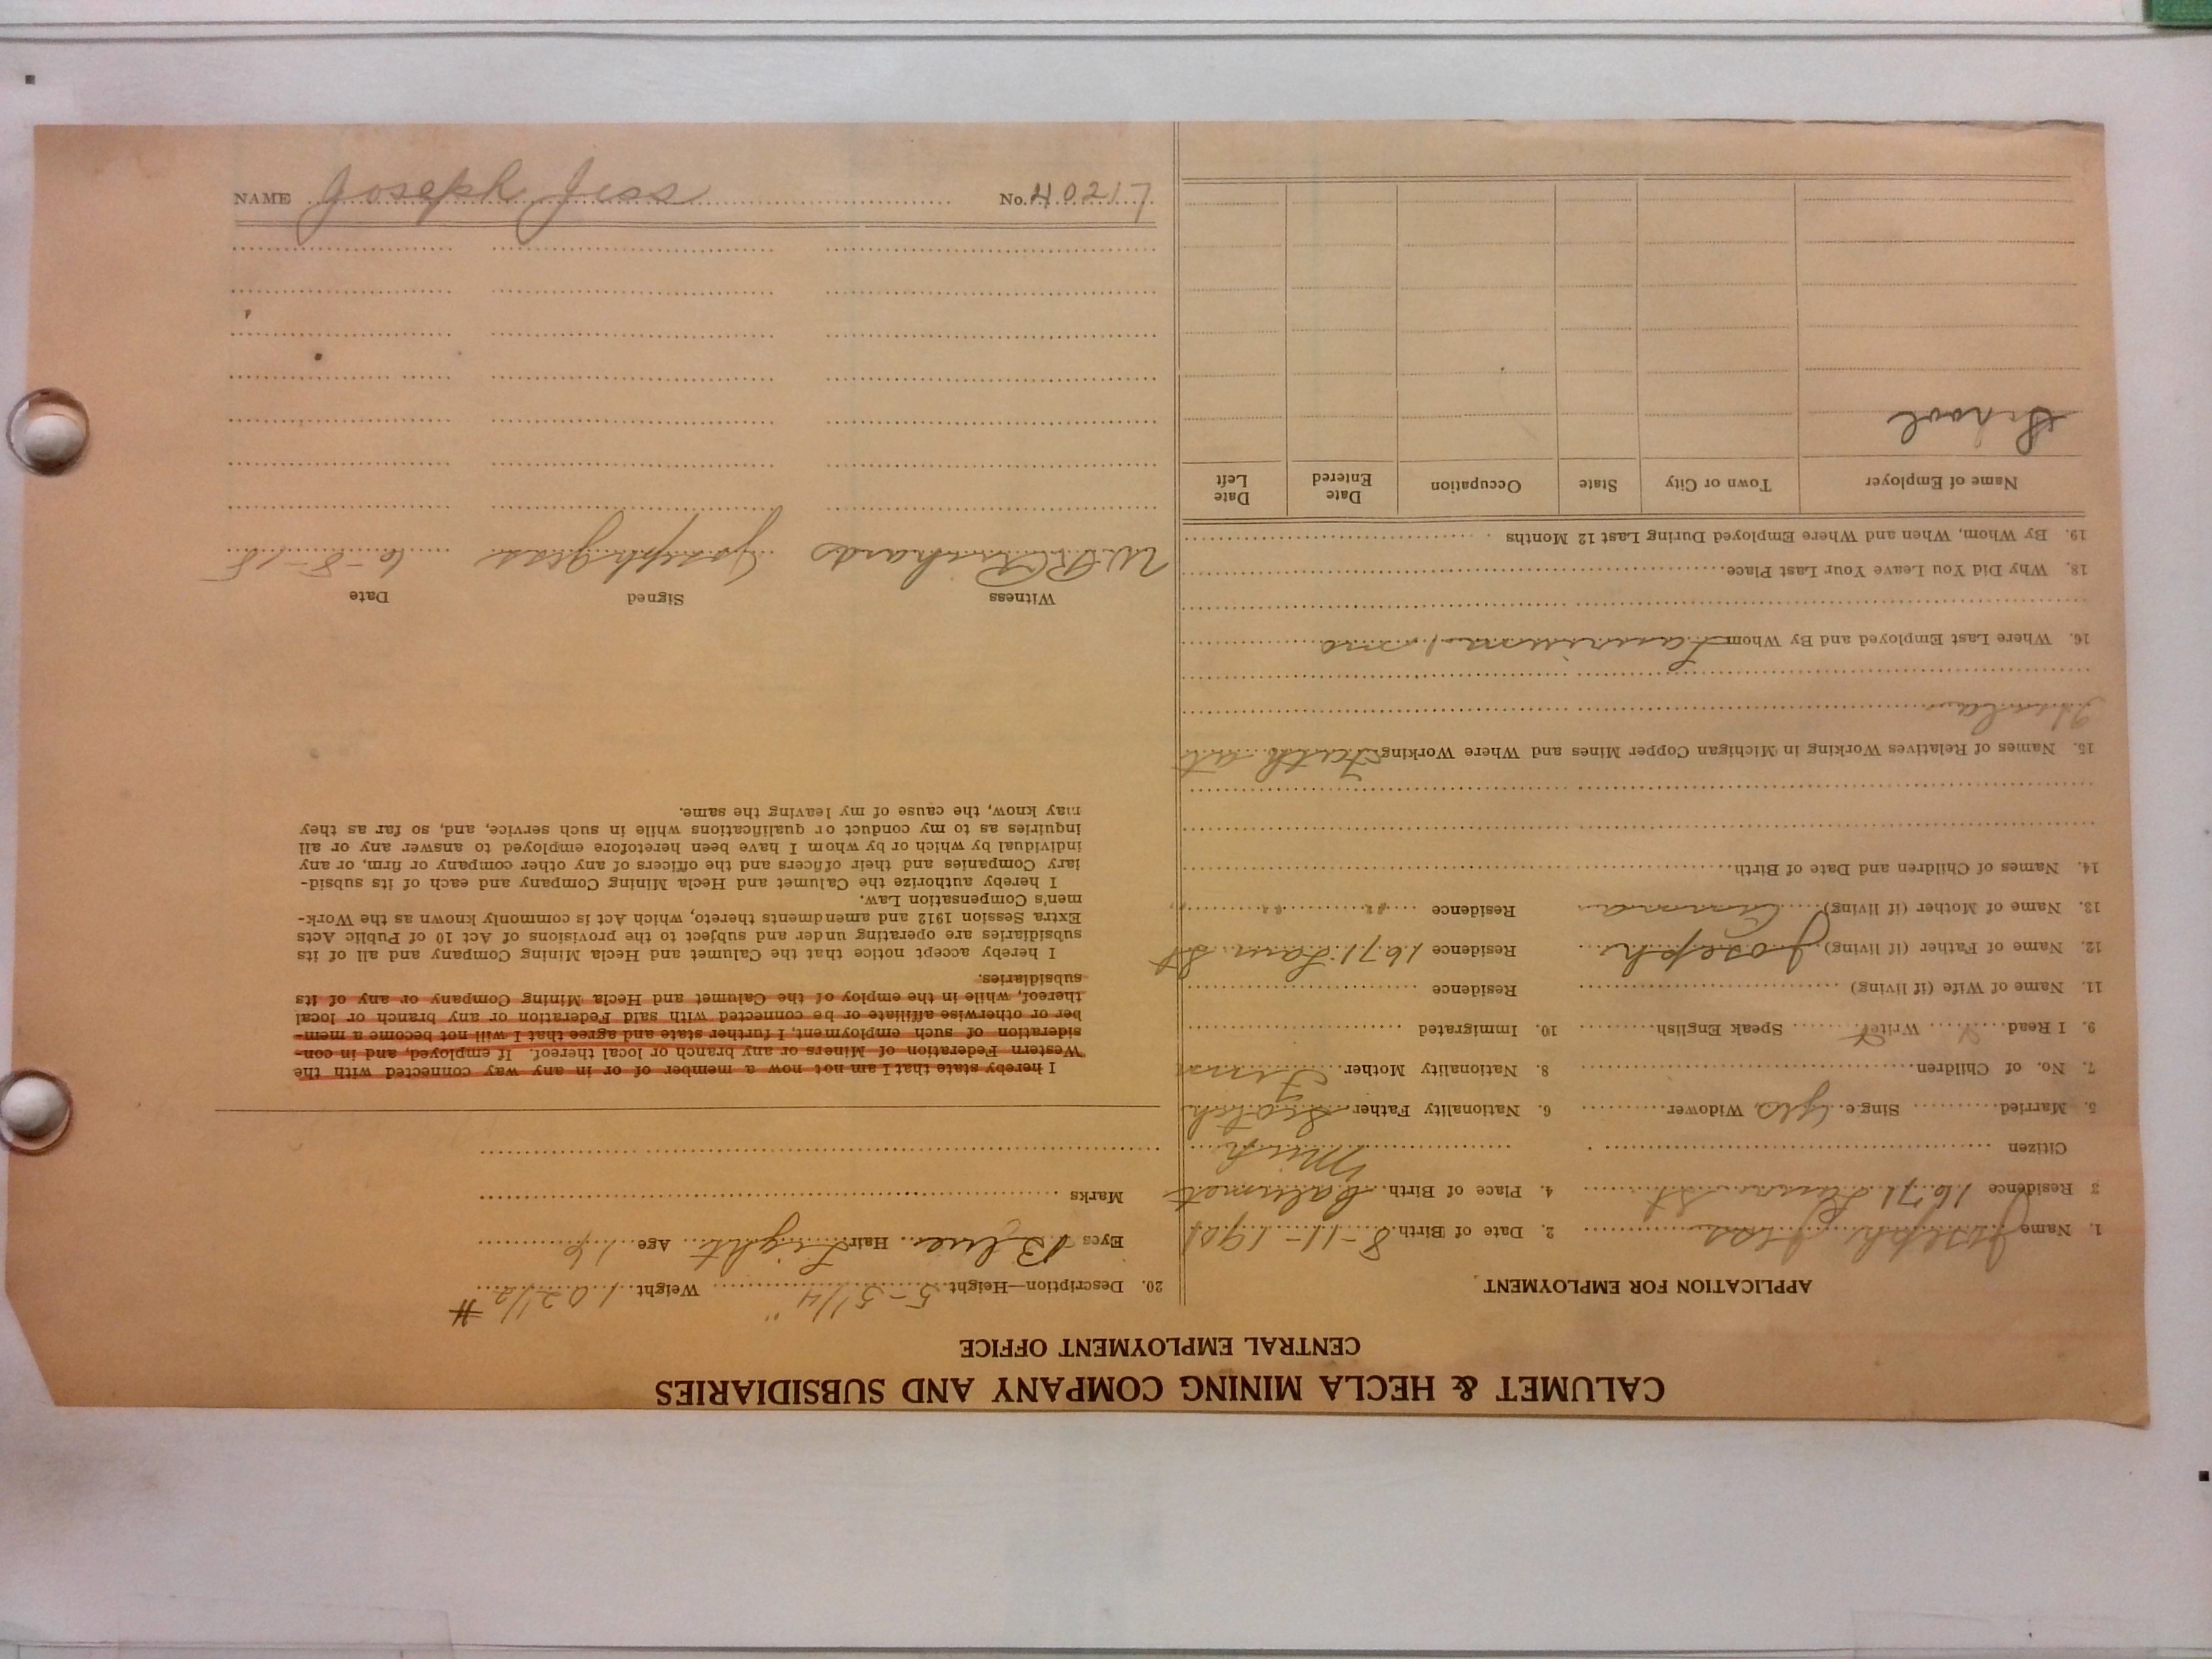 CALUMET & HECLA MINING COMPANY AND SUBSIDIARIES
CENTRAL EMPLOYMENT OFFICE
APPLICATION FOR EMPLOYMENT
1. Name Joseph Jess 2. Date of Birth 8-11-1901
3 Residence 1671 Laur St 4. Place of Birth Calumet
Citizen Mich
5. Married Single yes, Widower 6. Nationality Father Scotch
7. No. of Children 8. Nationality Mother Finn
9. I Read Write Speak English 10. Immigrated
11. Name of Wife (if living) Residence
12. Name of Father (if living) Joseph Residence 1671 Laur St
13. Name of Mother (if living) Anna Residence " " "
14. Names of Children and Date of Birth
15. Names of Relatives Working in Michigan Copper Mines and Where Working Fath at
16. Where Last Employed and By Whom Laurium
18. Why Did You Leave Your Last Place
19. By Whom, When and Where Employed During Last 12 Months
Name of Employer Town or City State Occupation Date Entered Date Left
School
20. Description—Height 5-5 1/4" Weight 102 1/2 #
Eyes Blue Hair Light Age 16
Marks
I hereby state that I am not now a member of or in any way connected with the
Western Federation of Miners or any branch or local thereof. If employed, and in con-
sideration of such employment, I further state and agree that I will not become a mem-
ber or otherwise affiliate or be connected with said Federation or any branch or local
thereof, while in the employ of the Calumet and Hecla Mining Company or any of its
subsidiaries.
I hereby accept notice that the Calumet and Hecla Mining Company and all of its
subsidiaries are operating under and subject to the provisions of Act 10 of Public Acts
Extra Session 1912 and amendments thereto, which Act is commonly known as the Work-
men's Compensation Law.
I hereby authorize the Calumet and Hecla Mining Company and each of its subsid-
iary Companies and their officers and the officers of any other company or firm, or any
individual by which or by whom I have been heretofore employed to answer any or all
inquiries as to my conduct or qualifications while in such service, and, so far as they
may know, the cause of my leaving the same.
Witness Signed Date
W. R. Richards Joseph Jess 6-8-18
NAME Joseph Jess No. 40217